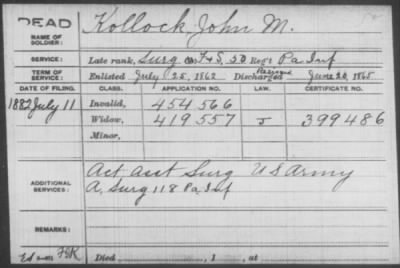 DEAD
NAME OF SOLDIER: Kollock, John M.
SERVICE: Late rank, Surg F&S, 50 Reg't Pa Inf
TERM OF SERVICE: Enlisted July 25, 1862 Discharged June 20, 1865
DATE OF FILING. CLASS. APPLICATION NO. LAW. CERTIFICATE NO.
1882 July 11 Invalid, 454566
Widow, 419557 J 399486
Minor,
Act Asst Surg US Army
ADDITIONAL SERVICES: A. Surg 118 Pa Inf
REMARKS:
Died , 1 , at